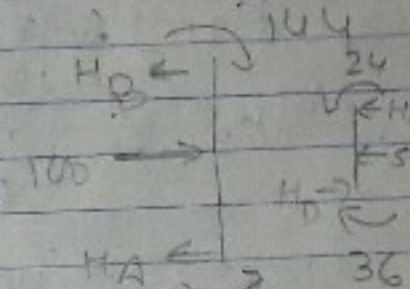 144
HB ← 24
← H
100 → ← 5
HD →
HA ← 36